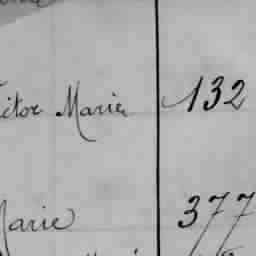 ictor Marie 132
Marie 377